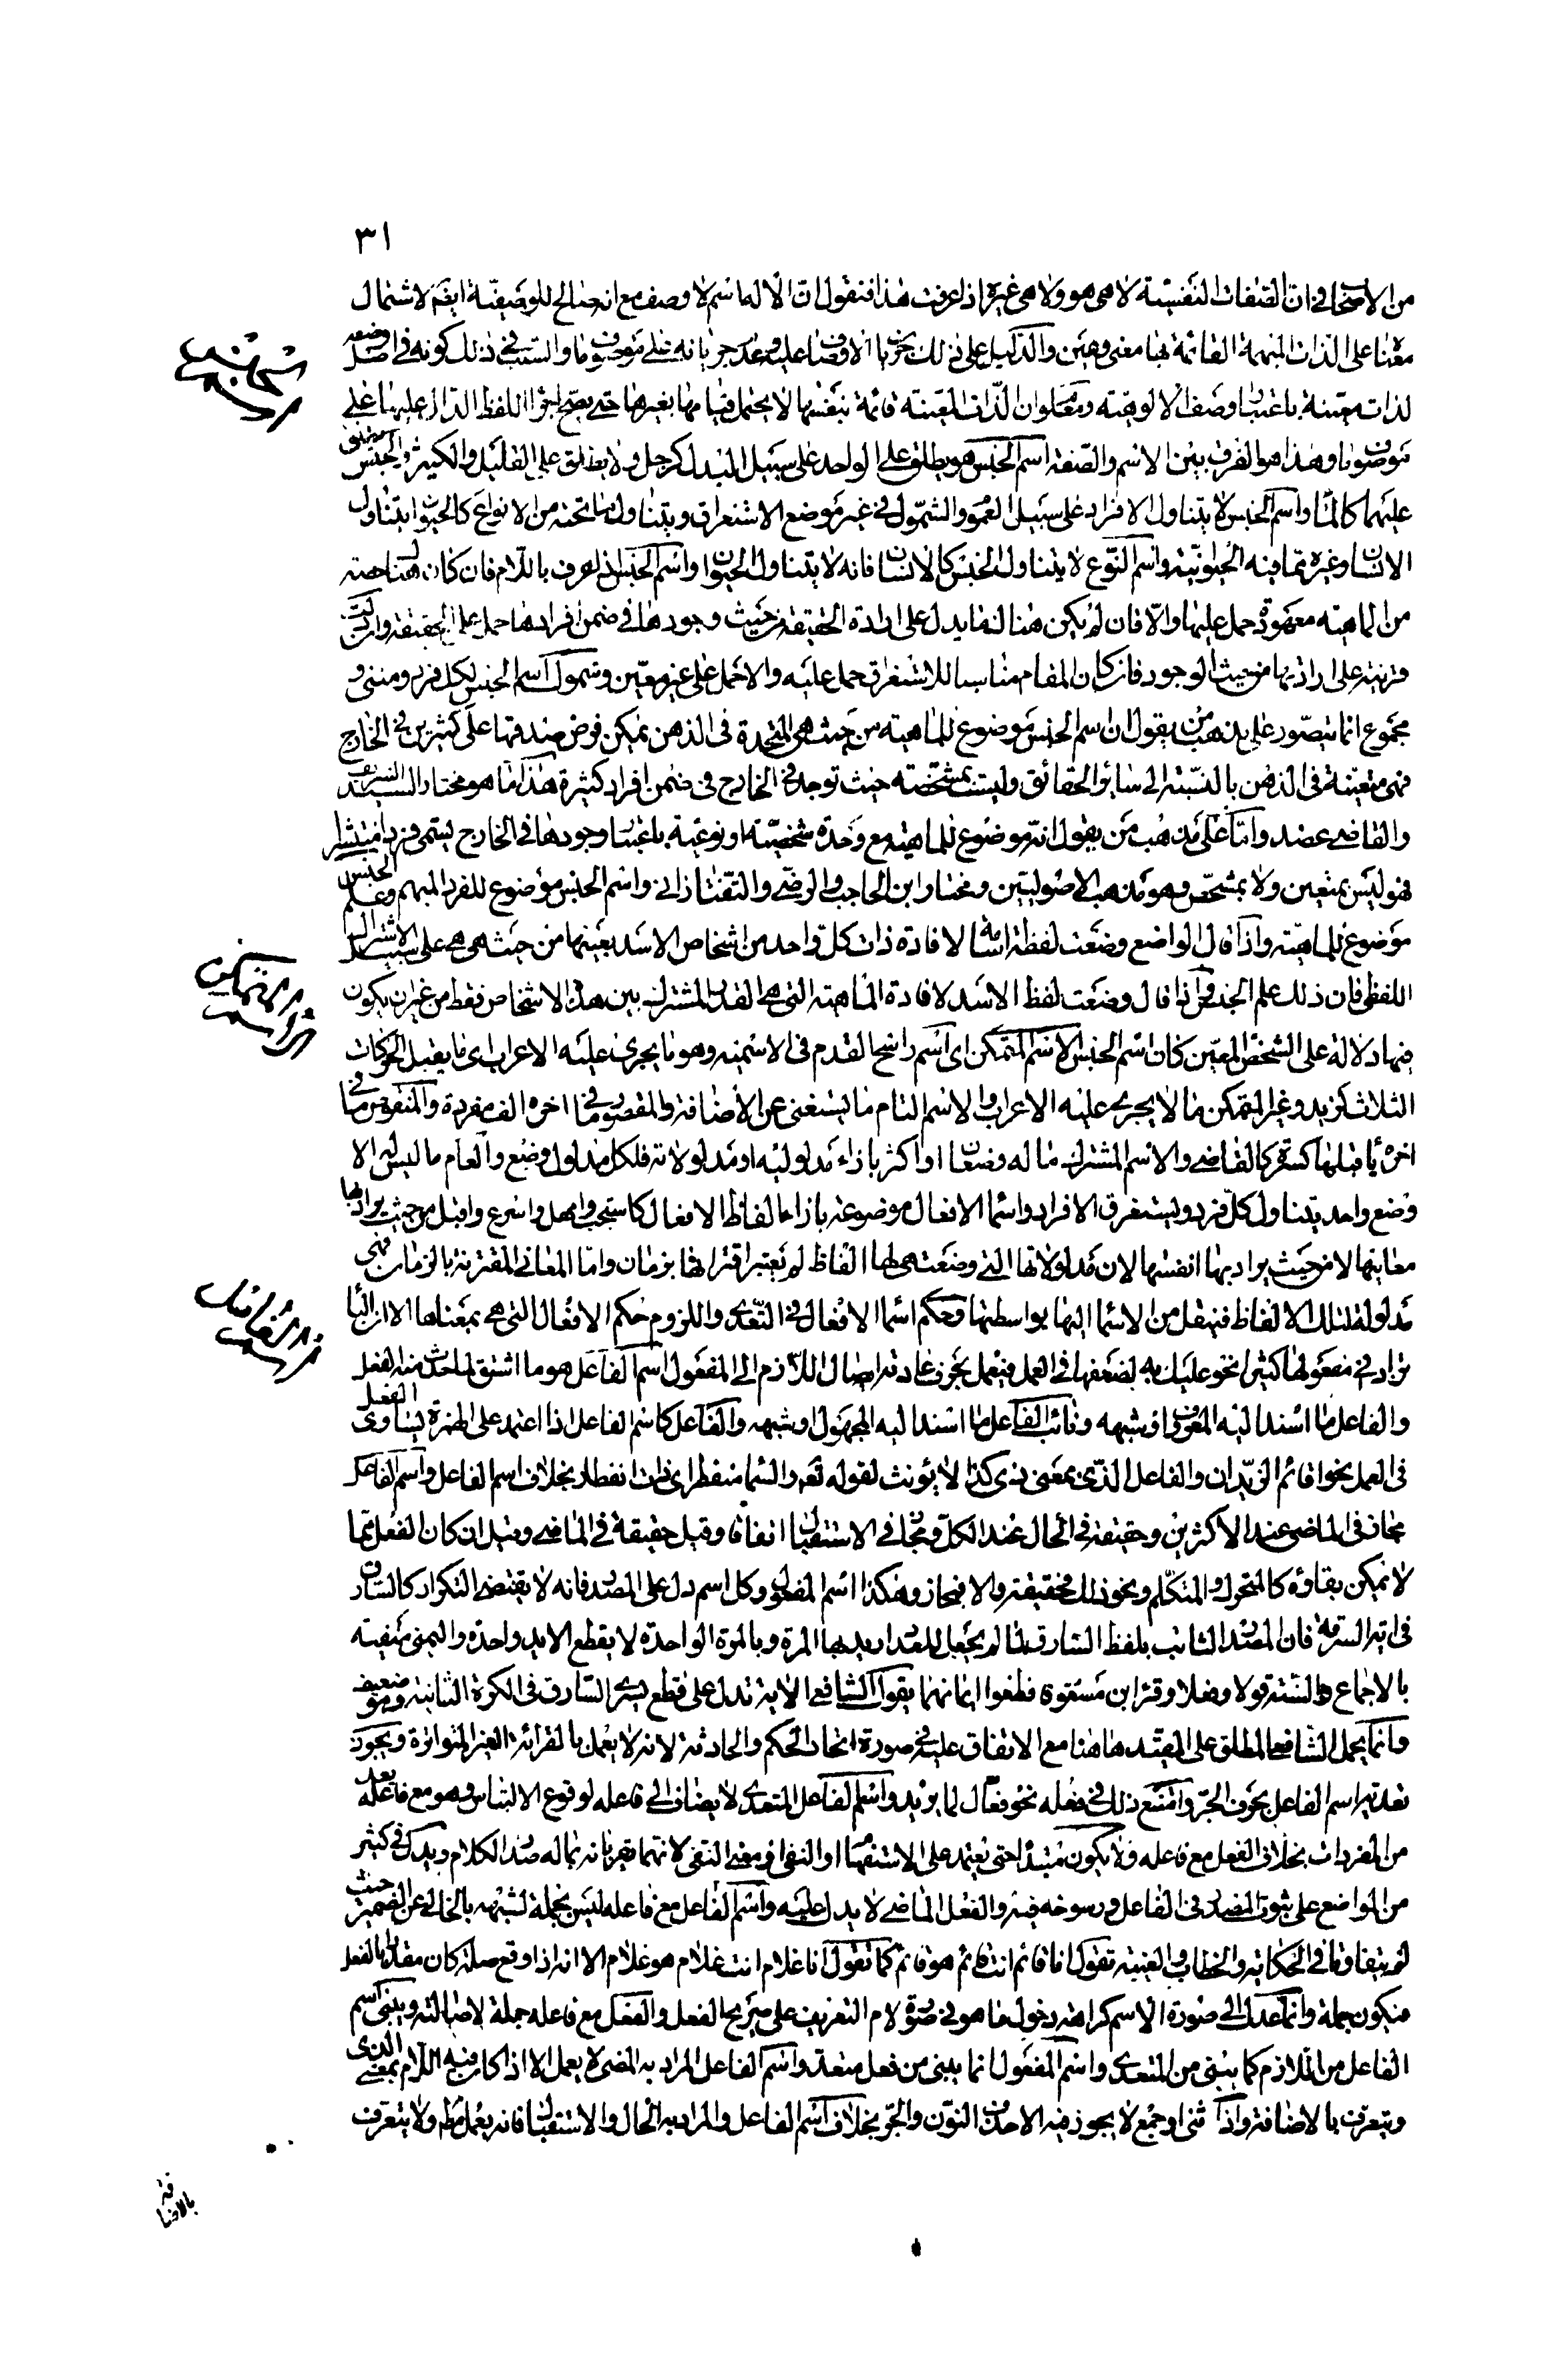 ٣١
من الاصحاب في ان الصفات النفسية لا هي هو ولا هي غيره اذا عرفت هذا فنقول ان الاله اسم لا وصف مع انه صالح للوصفية ايضا لاشتمال
معناه على الذات المبهمة القائمة بها معنى معين والدليل على ذلك جريان الاوصاف عليه وعدم جريانه على موصوف ما والسبب في ذلك كونه في اصل وضعه
لذات معينة باعتبار وصف الالوهية ومعلوم ان الذات المعينة قائمة بنفسها لا يحتمل قيامها بغيرها حتى يصح اجراء اللفظ الدال عليها على
موصوف ما وهذا هو الفرق بين الاسم والصفة اسم الجنس هو يطلق على الواحد على سبيل البدل كرجل ولا يطلق على القليل والكثير والجنس يطلق
عليهما كالماء واسم الجنس لا يتناول الافراد على سبيل العموم والشمول في غير موضع الاستغراق ويتناول ما تحته من الانواع كالحيوان يتناول
الانسان وغيره مما فيه الحيوانية واسم النوع لا يتناول الجنس كالانسان فانه لا يتناول الحيوان واسم الجنس اذا عرف باللام فان كان هناك حصة
من الماهية معهودة حمل عليها والا فان لم يكن هناك ما يدل على ارادة الحقيقة من حيث وجودها في ضمن افرادها حمل على الحقيقة وان كانت
قرينة على ارادتها من حيث الوجود فان كان المقام مناسبا للاستغراق حمل عليه والا حمل على غير معين وشمول اسم الجنس لكل فرد ومثنى و
مجموع انما يتصور على مذهب من يقول ان اسم الجنس موضوع للماهية من حيث هي المتحدة في الذهن يمكن فرض صدقها على كثيرين في الخارج
فهي متعينة في الذهن بالنسبة الى سائر الحقائق وليست بمشخصة حيث توجد في الخارج في ضمن افراد كثيرة هذا ما هو مختار السيد الشريف
والقاضي عضد واما على مذهب من يقول انه موضوع للماهية مع وحدة شخصية او نوعية باعتبار وجودها في الخارج يسمى فردا منتشرا
فهو ليس بمتعين ولا بمشخص وهو مذهب الاصوليين ومختار ابن الحاجب والرضي والتفتازاني واسم الجنس موضوع للفرد المبهم وعلم الجنس
موضوع للماهية واذا قال الواضع وضعت لفظة اسامة لافادة ذات كل واحد من اشخاص الاسد بعينها من حيث هي هي على سبيل الاشتراك
اللفظي فان ذلك علم الجنس واذا قال وضعت لفظ الاسد لافادة الماهية التي هي القدر المشترك بين هذه الاشخاص فقط من غير ان يكون
فيها دلالة على الشخص المعين كان اسم الجنس الاسم المتمكن اي اسم راسخ القدم في الاسمية وهو ما يجري عليه الاعراب اي ما يقبل الحركات
الثلاث كزيد وغير المتمكن ما لا يجري عليه الاعراب والاسم التام ما يستغنى عن الاضافة والمقصور ما في اخره الف مفردة والمنقوص ما في
اخره ياء قبلها كسرة كالقاضي والاسم المشترك ما له وضعان او اكثر بازاء مدلوليه او مدلولاته فلكل مدلول وضع والعام ما ليس له الا
وضع واحد يتناول كل فرد ويستغرق الافراد واسماء الافعال موضوعة بازاء الفاظ الافعال كاستجب وامهل واسرع واقبل من حيث يراد بها
معانيها لا من حيث يراد بها انفسها لان مدلولاتها التي وضعت هي لها الفاظ لم يعتبر اقترانها بزمان واما المعاني المقترنة بالزمان فهي
مدلولة لتلك الالفاظ فينتقل من الاسماء اليها بواسطتها وحكم اسماء الافعال في التعدي واللزوم حكم الافعال التي هي بمعناها الا ان الباء
تزاد في مفعولها كثيرا نحو عليك به لضعفها في العمل فيعمل بحرف عادته ايصال اللازم الى المفعول اسم الفاعل هو ما اشتق لما حدث منه الفعل
والفاعل ما اسند اليه المعروف او شبهه ونائب الفاعل ما اسند اليه المجهول او شبهه والفاعل كاسم الفاعل اذا اعتمد على الهمزة يساوي الفعل
في العمل نحو اقائم الزيدان والفاعل الذي بمعنى ذي كذا لا يؤنث لقوله تعالى والسماء منفطر اي ذات انفطار بخلاف اسم الفاعل واسم الفاعل
مجاز في الماضي عند الاكثرين وحقيقة في الحال عند الكل ومجاز في الاستقبال اتفاقا وقيل حقيقة في الماضي وقيل ان كان الفعل مما
لا يمكن بقاؤه كالمتحرك والمتكلم ونحو ذلك فحقيقة والا فمجاز وهكذا اسم المفعول وكل اسم دل على المصدر فانه لا يقتضي التكرار كالسارق
في اية السرقة فان المصدر الثابت بلفظ السارق لما لم يحتمل العدد اريد بها المرة وبالمرة الواحدة لا يقطع الا يد واحدة واليمنى متعينة
بالاجماع والسنة قولا وفعلا وقراءة ابن مسعود فاقطعوا ايمانهما يقول الشافعي الاية تدل على قطع يسرى السارق في الكرة الثانية وهو ضعيف
وانما يحمل الشافعي المطلق على المقيد هاهنا مع الاتفاق عليه في صورة اتحاد الحكم والحادثة لانه لا يعمل بالقرائة الغير المتواترة ويجوز
تعدية اسم الفاعل بحرف الجر وامتنع ذلك في فعله نحو فعال لما يريد واسم الفاعل المتعدي لا يضاف الى فاعله لوقوع الالتباس وهو مع فاعله يعد
من المفردات بخلاف الفعل مع فاعله ولا يكون مبتدأ حتى يعتمد على الاستفهام او النفي او معنى النفي لانهما يقربانه بما له صدر الكلام ويدل في كثير
من المواضع على ثبوت المصدر في الفاعل ورسوخه فيه والفعل الماضي لا يدل عليه واسم الفاعل مع فاعله ليس بجملة لشبهه بالخالي عن الضمير حيث
لم يتفاوتا في الحكاية والخطاب والغيبة تقول انا قائم انت قائم هو قائم كما تقول انا غلام انت غلام هو غلام الا انه اذا وقع صلة كان مقدرا بالفعل
فيكون جملة وانما عدل الى صورة الاسم كراهة دخول ما هو في صورة لام التعريف على صريح الفعل والفعل مع فاعله جملة لاصالته ويبنى اسم
الفاعل من اللازم كما يبنى من المتعدي واسم المفعول انما يبنى من فعل متعد واسم الفاعل المراد به المضي لا يعمل الا اذا كان فيه اللام بمعنى الذي
ويتعرف بالاضافة واذا ثنى او جمع لا يجوز فيه الا حذف النون والجر بخلاف اسم الفاعل والمراد به الحال والاستقبال فانه يعمل مطلقا ولا يتعرف
بالاضافة